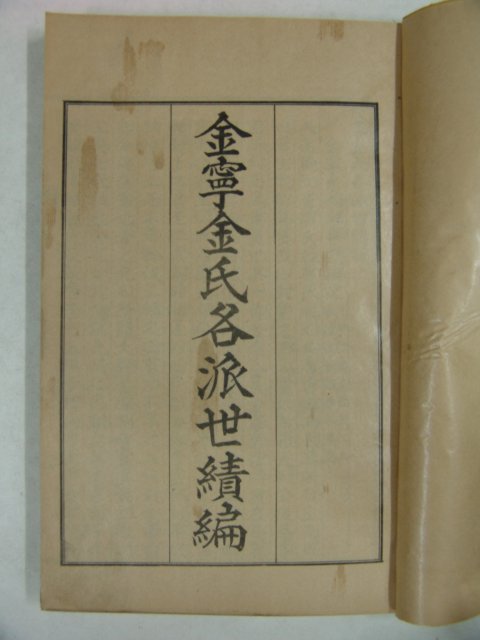 金寧金氏各派世績編